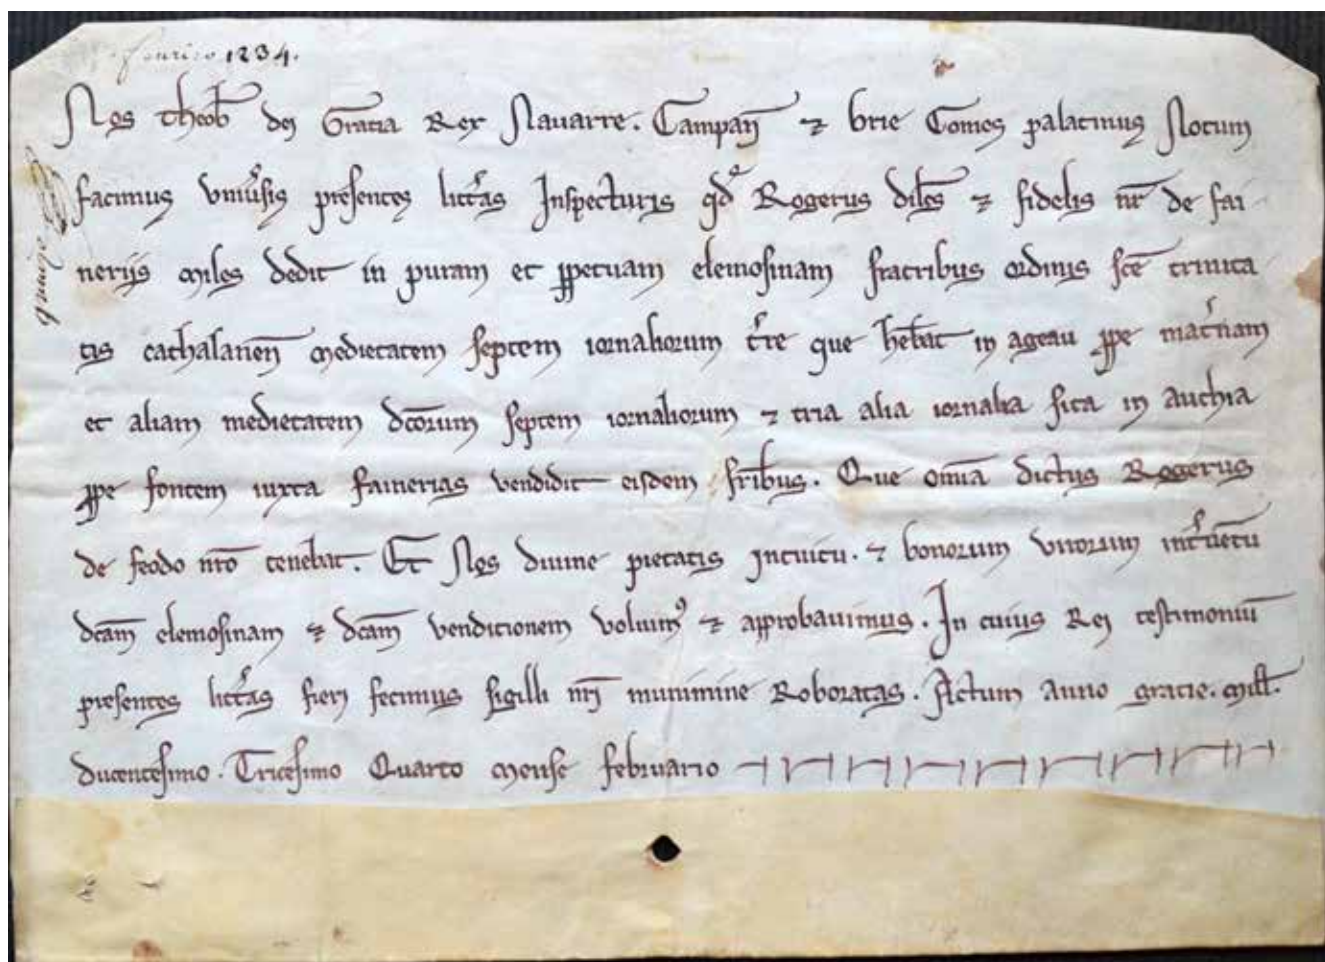 1234.
Nos theob dei Gratia Rex Nauarre. Campañ ⁊ brie Comes palatinus Notum
facimus vniu'sis presentes litt'as Inspecturis qd Rogerus dil'es ⁊ fidelis nr̄ de fai
nerijs miles dedit in puram et ꝑpetuam elemosinam fratribus ordinis sce trinita
tis cathalaneñ medietatem septem iornaliorum t're que hebat in ageau ꝓpe mat'nam
et aliam medietatem dc̄orum septem iornaliorum ⁊ tria alia iornalia sita in auchia
ꝓpe fontem iuxta fainerias vendidit eisdem fribus. Que om̄ia dictus Rogerus
de feodo nr̄o tenebat. Et Nos diuine pietatis Intuitu. ⁊ bonorum virorum int'uētu
dc̄am elemosinam ⁊ dc̄am venditionem voluim᾿ ⁊ approbauimus. In cuius Rei testimoniū
presentes litt'as fieri fecimus sigilli nr̄i munimine Roboratas. Actum anno gratie. mill.
ducentesimo. Tricesimo Quarto mense februario